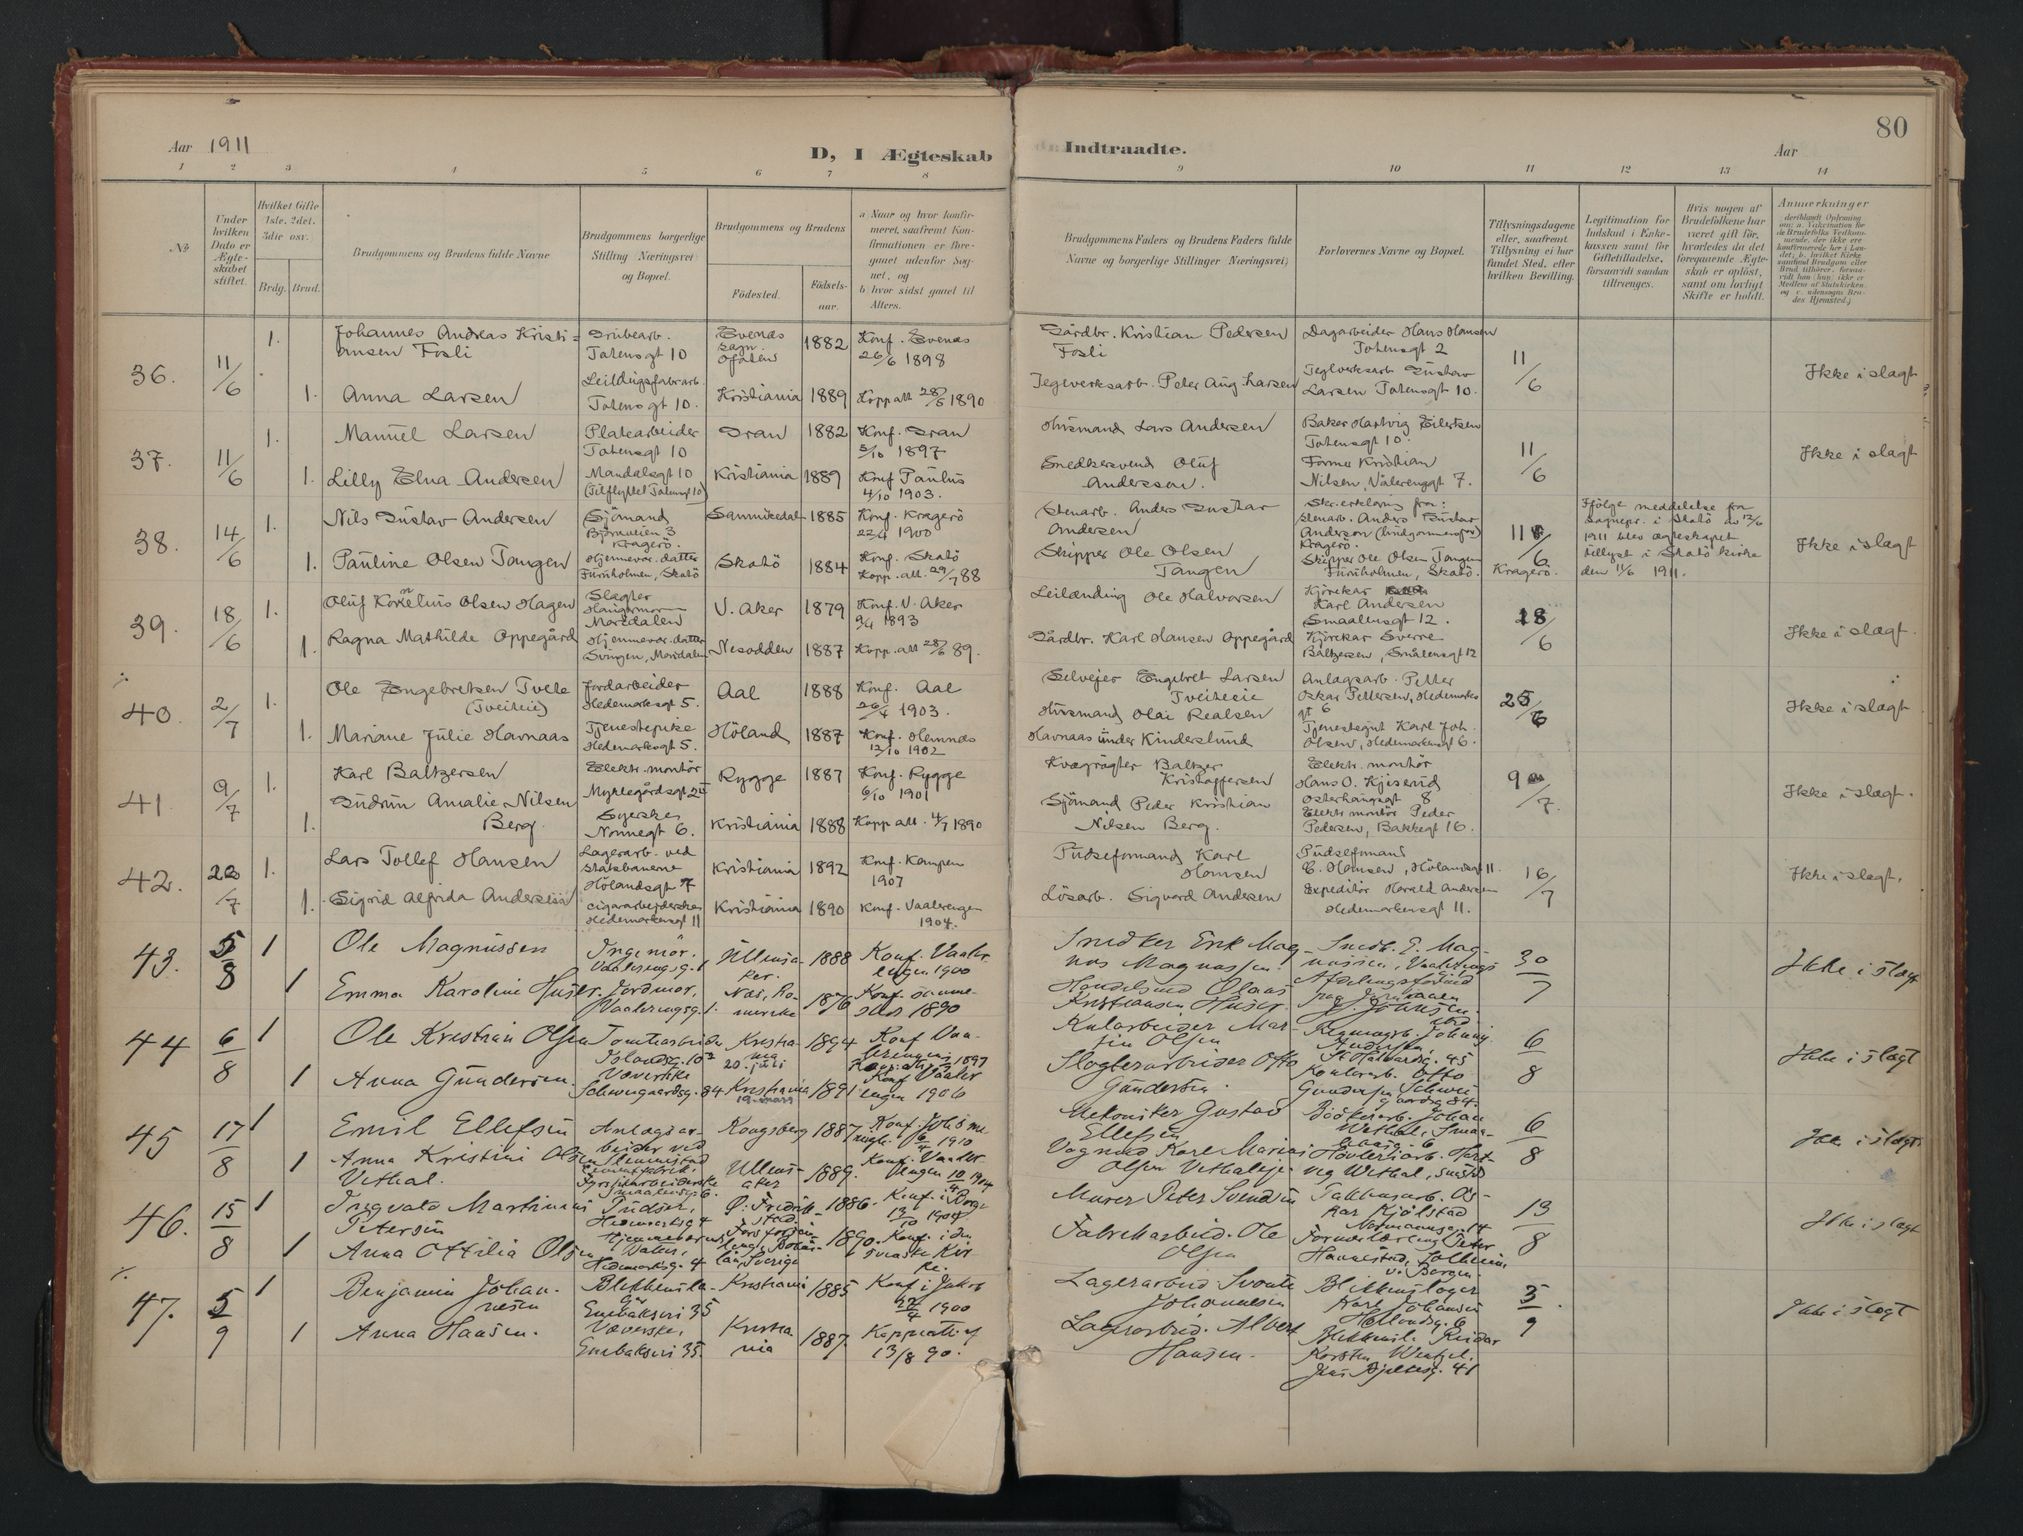 80
Aar 1911
D, I Ægteskab
Indtraadte.
Aar
1 2 3 4 5 6 7 8 9 10 11 12 13 14
No
Under hvilken Dato er Ægteskabet stiftet.
Hvilket Gifte 1ste, 2det, 3die osv.
Brdg. Brud.
Brudgommens og Brudens fulde Navne
Brudgommens borgerlige Stilling Næringsvei og Bopæl.
Brudgommens og Brudens
Fødested.
Fødselsaar.
a Naar og hvor konfirmeret, saafremt Konfirmationen er foregaaet udenfor Sognet, og
b hvor sidst gaaet til Alters.
Brudgommens Faders og Brudens Faders fulde Navne og borgerlige Stillinger Næringsvei;
Forlovernes Navne og Bopæl.
Tillysningsdagene eller, saafremt Tillysning ei har fundet Sted, efter hvilken Bevilling.
Legitimation for Indskud i Enkekassen samt for Giftetilladelse, forsaavidt saadan tiltrænges.
Hvis nogen af Brudefolkene har været gift før, hvorledes da det foregaaende Ægteskab er opløst, samt om lovligt Skifte er holdt.
Anmærkninger
36. 11/6 1. Johannes Andreas Kristiansen Fosli
Grubearb. Totensgt 10
Evenes sogn. Ofoten 1882 Konf. Evenes 26/6 1898
Gårdbr. Kristian Pedersen Fosli
Dagarbeider Hans Hansen Totensgt 2
11/6
Ikke i slægt
1. Anna Larsen
Totensgt 10.
Kristiania 1889 Kopp att 28/6 1890
Teglverksarb. Peter Aug. Larsen
Teglverksarb Gustav Larsen Totensgt 10.
37. 11/6 1. Manuel Larsen
Platearbeider Totensgt 10
Gran 1882 Konf. Gran 3/10 1897
Husmand Lars Andersen
Baker Hartvig Eilertsen Totensgt 10.
11/6
Ikke i slægt
1. Lilly Elna Andersen
Mandalsgt 10 (Tilflyttet Totensgt 10)
Kristiania 1889 Konf Paulus 4/10 1903.
Snedkersvend Oluf Anderson.
Former Kristian Nilsen, Vålerenggt 7.
38. 14/6 1. Nils Gustav Andersen
Sjömand Kragerö
Sannikedal 1885 Konf. Kragerö 22/4 1900
Stenarb. Anders Gustav Andersen
Skr. erklæring fra: Stenarb. Anders Gustav Anderson (brudgommens far) Kragerö.
11/6 Kragerö.
Ifölge meddelelse fra sognepr. i Skåtö av 12/6 1911 blev ægteskapet tillyst i Skåtö kirke den 11/6 1911.
Ikke i slægt
1. Pauline Olsen Tangen
Hjemmevær. datter Furuholmen, Skåtö
Skåtö 1884 Konf. Skåtö Kopp. att. 29/7 88
Skipper Ole Olsen Tangen
Skipper Ole Olsen Tangen Furuholmen, Skåtö.
39. 18/6 1. Oluf Kornelius Olsen Hagen
Slagter Maridalen
V. Aker 1879 Konf. V. Aker 9/4 1893
Leilænding Ole Halvorsen
Kjörekar Karl Andersen Smaalensgt 12.
18/6
Ikke i slægt.
1. Ragna Mathilde Oppegård
Hjemmevær. datter Svingen, Maridalen
Nesodden 1887 Kopp. att 28/6 89.
Gårdbr. Karl Hansen Oppegård
Kjörekar Sverre Baltzersen, Smålensgt 12
40. 2/7 1. Ole Engebretsen Tveite (Tveiteie)
Jordarbeider Hedemarksgt 5.
Aal 1888 Konf. Aal 26/4 1903.
Selveier Engebret Larsen Tveiteeie
Anlægsarb. Petter Oskar Pettersen, Hedemarksgt 6
25/6
Ikke i slægt
1. Mariane Julie Havnaas
Tjenestepike Hedemarksgt 5.
Höland 1887 Konf. Hemnæs 12/10 1902
Husmand Olai Realsen Havnaas under Kinderslund
Tjenestegut Karl Joh. Olsen, Hedemarksgt 6.
41. 9/7 1. Karl Baltzersen
Elektr. montör
Rygge 1887 Konf. Rygge 6/10 1901
Kvægrögter Baltzer Kristoffersen
Elektr. montör Hans O. Kjiserud Osterhausgt 8
9/7
Ikke i slægt.
1. Gudrun Amalie Nilsen Berg.
Syerske Nonnegt 6.
Kristiania 1888 Kopp att. 4/7 1890
Sjömand Peder Kristian Nilsen Berg.
Elektr montör Peder Pedersen, Bakkegt 16.
42. 22/7 1. Lars Tollef Hansen
Lagerarb. ved Statsbanerne Hölandsgt 7
Kristiania 1892 Konf. Kampen 1907
Pudseformand Karl Hansen
Pudseformand C. Hansen, Hölandsgt 11.
16/7
Ikke i slægt.
1. Sigrid Alfrida Andersen
Cigararbejderske Hedemarkensgt 11
Kristiania 1890 Konf. Vaalerengen 1904.
Lösarb. Sigvard Andersen
Expeditör Harald Andersen Hedemarkensgt 11.
43. 5/8 1 Ole Magnussen
Vaalerengsg. 1
Ullensaker. 1888 Konf. Vaalerengen 1900
Snidker Erik Magnus Magnussen.
Snedk. E. Magnussen, Vaalerengs
30/7
Ikke i slægt
1 Emma Karoline Huser.
Jordmor, Vaalerengsg. 1.
Næs, Romerike 1876
Kristiansen Huser.
44 6/8 1 Ole Kristian Olsen
Tomtearbeider
Kristiania 20. juli 1894 Konf Vaalerengen
Kularbeider Martin Olsen
6/8
Ikke i slægt
1 Anna Gundersen.
Væverske Schweigaardsg. 84
Kristiania 19. mars 1891 Konf Vaalerengen 1906
Slagterarbeider Otto Gundersen.
Kontorarb. Otto Gundersen Schweigaardsg 84.
45 17/8 1 Emil Ellefsen
Anlægsarbeider ved
Kongsberg 1887 1910
Mekaniker Gustav Ellefsen
Bödkerarb. Johan Wethal, Smaalensg. 6
6/8
Ikke i slægt
1 Anna Kristine Olsen Vethal.
Ullensaker 1889. Konf. Vaalerengen 1904
Vognmd Karl Marius Olsen
46. 15/8 1 Ingvald Martinius Petersen
Pudser, Hedmarksg 4
Ø. Fredrikstad. 1886. Konf. i Borge 13/10 1901
Murer Peter Svendsen
Takkingarb. Oskar Kjölstad Normannsg. 14
13/8
Ikke i slægt
1 Anna Ottilia Olsen
Hedemarksg. 4
Sverige 1890. Konf. i den svenske Kirke.
Fabrikarbeid. Ole Olsen
47. 5/9 1 Benjamin Johannesen
Blikkenslager Enebakveien 35
Kristiania 1885 Konf i Jakob 1900
Lagerarbeid Johannesen
Blikkenslager Karl Johansen
3/9
Ikke i slægt
1 Anna Hansen.
Væverske, Enebakveien 35.
Kristiania 1887. Koppeatt. af 13/8 90.
Lagerarbeid. Albert Hansen.